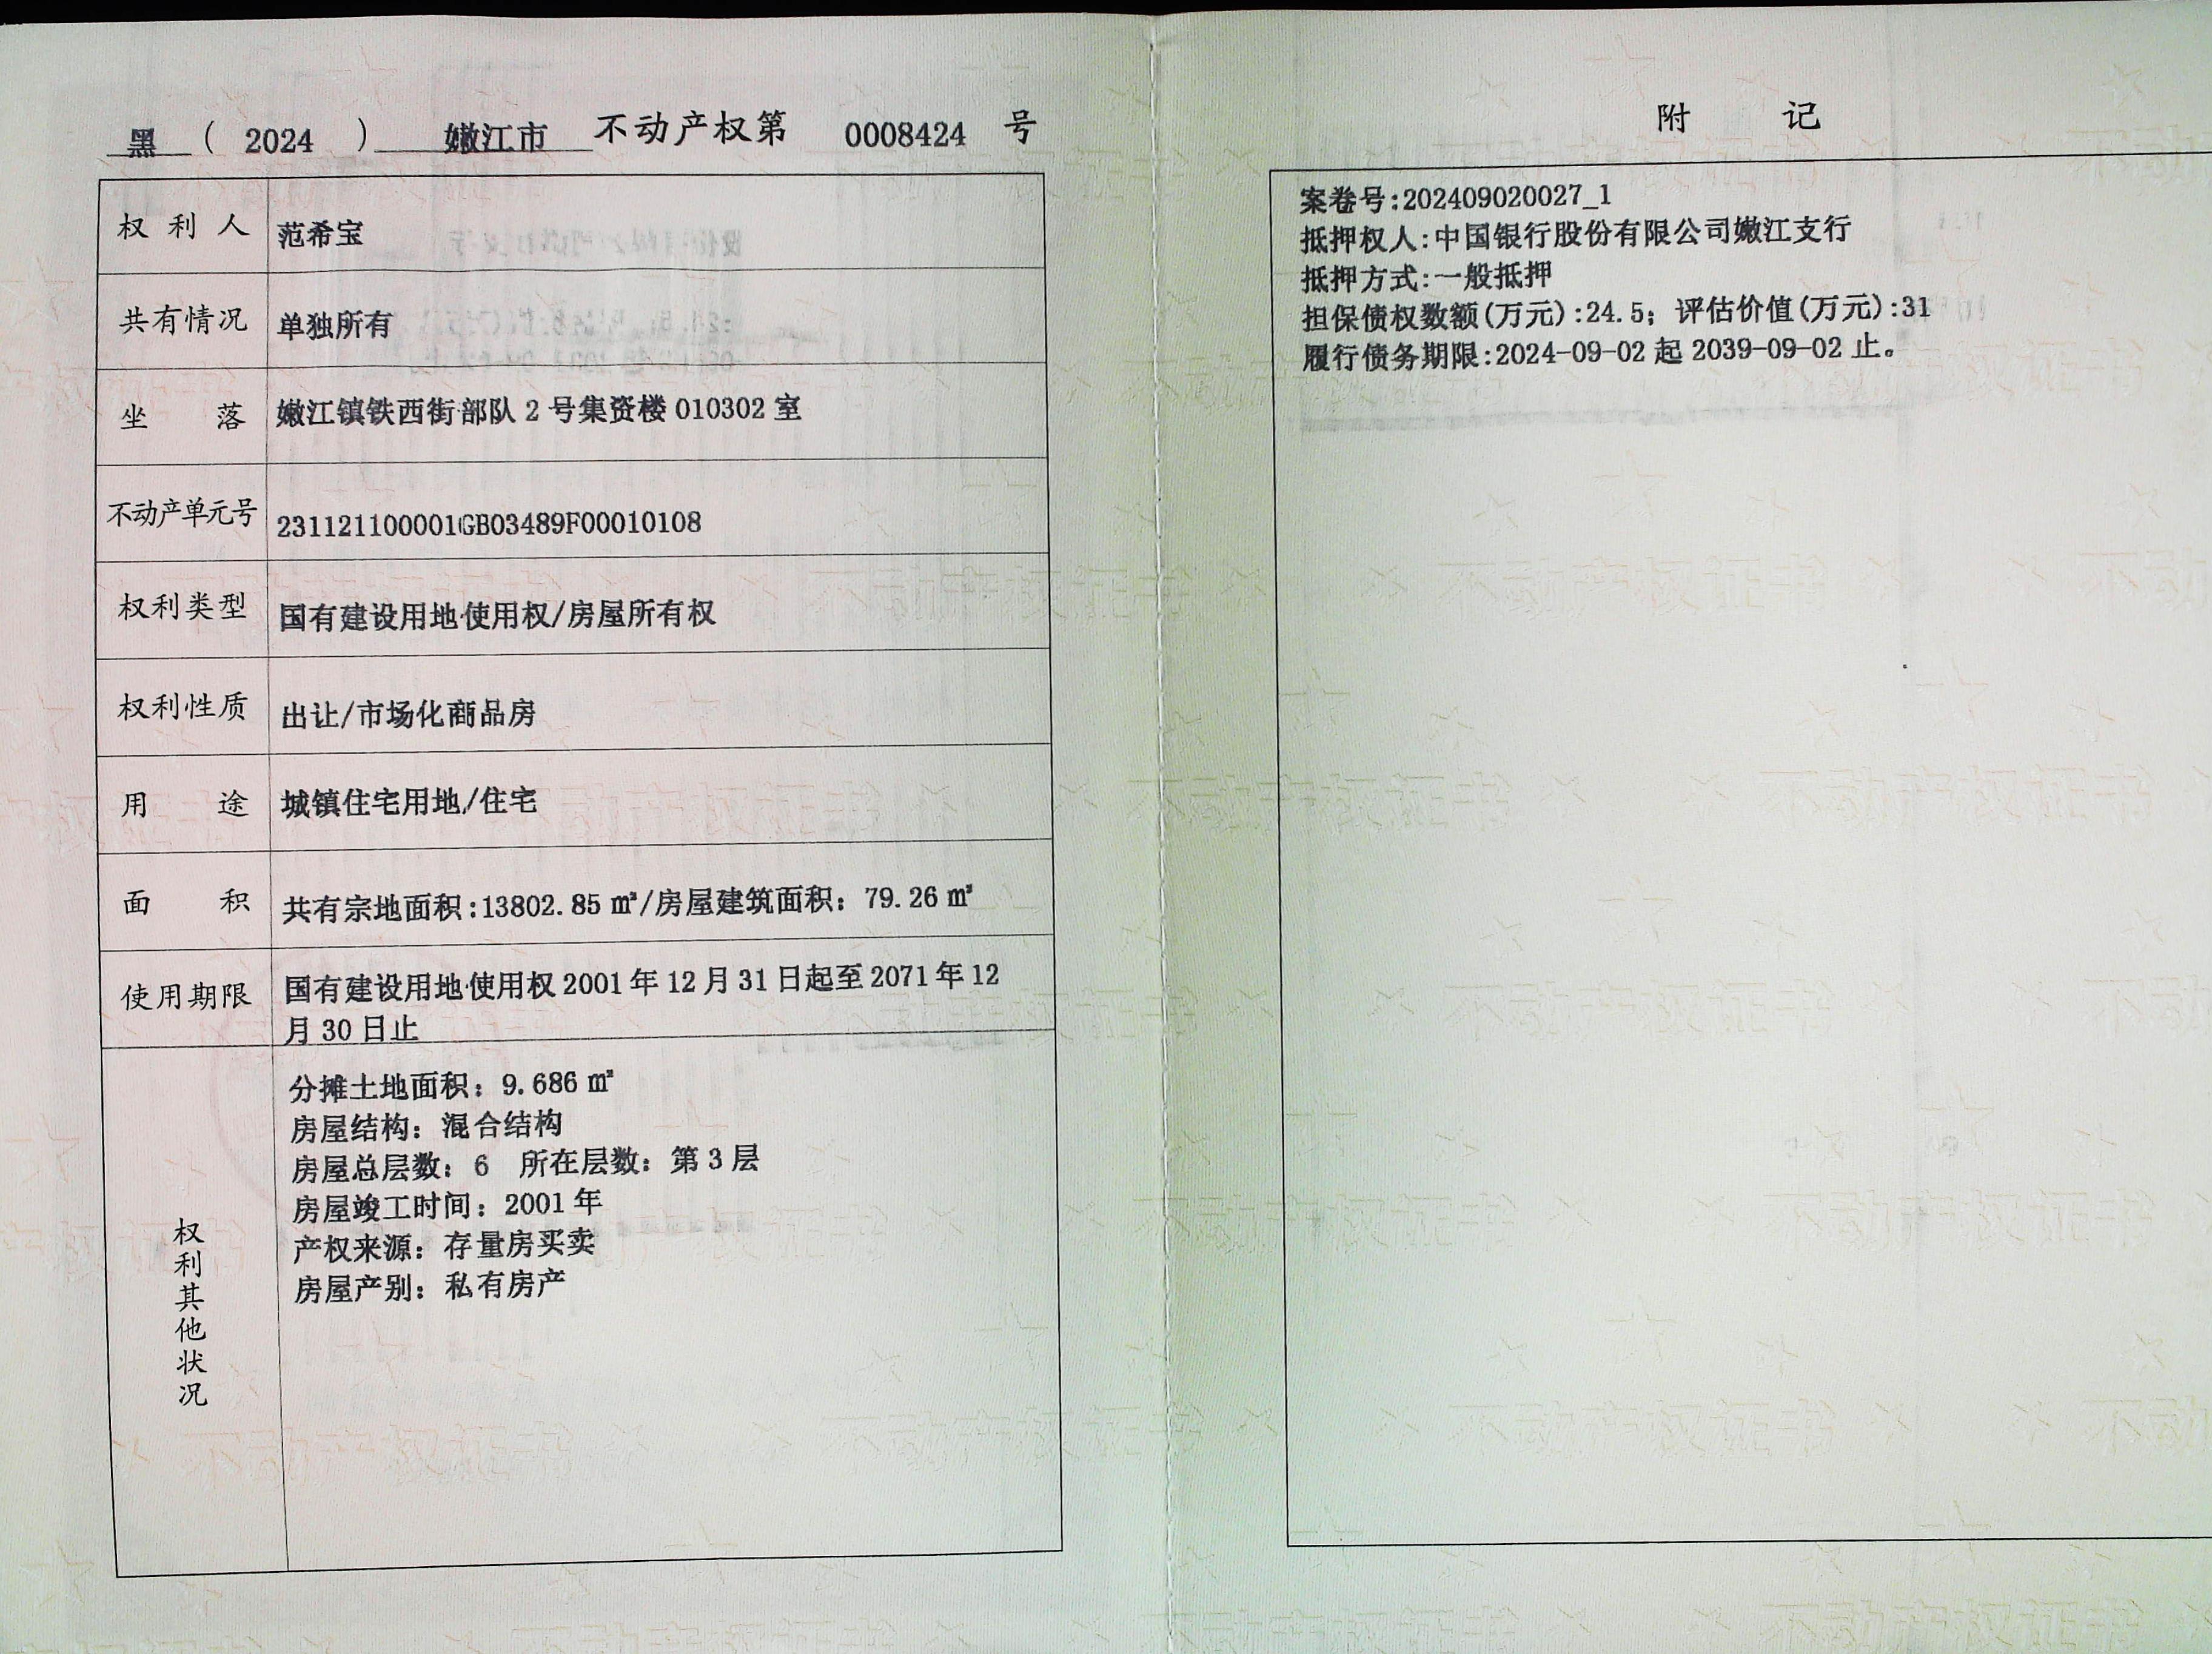 黑 ( 2024 ) 嫩江市 不动产权第 0008424 号
权利人 范希宝
共有情况 单独所有
坐落 嫩江镇铁西街部队 2 号集资楼 010302 室
不动产单元号 231121100001GB03489F00010108
权利类型 国有建设用地使用权/房屋所有权
权利性质 出让/市场化商品房
用途 城镇住宅用地/住宅
面积 共有宗地面积:13802.85 ㎡/房屋建筑面积: 79.26 ㎡
使用期限 国有建设用地使用权 2001 年 12 月 31 日起至 2071 年 12
月 30 日止
权利其他状况
分摊土地面积: 9.686 ㎡
房屋结构: 混合结构
房屋总层数: 6 所在层数: 第 3 层
房屋竣工时间: 2001 年
产权来源: 存量房买卖
房屋产别: 私有房产
附记
案卷号:202409020027_1
抵押权人:中国银行股份有限公司嫩江支行
抵押方式:一般抵押
担保债权数额(万元):24.5; 评估价值(万元):31
履行债务期限:2024-09-02 起 2039-09-02 止。